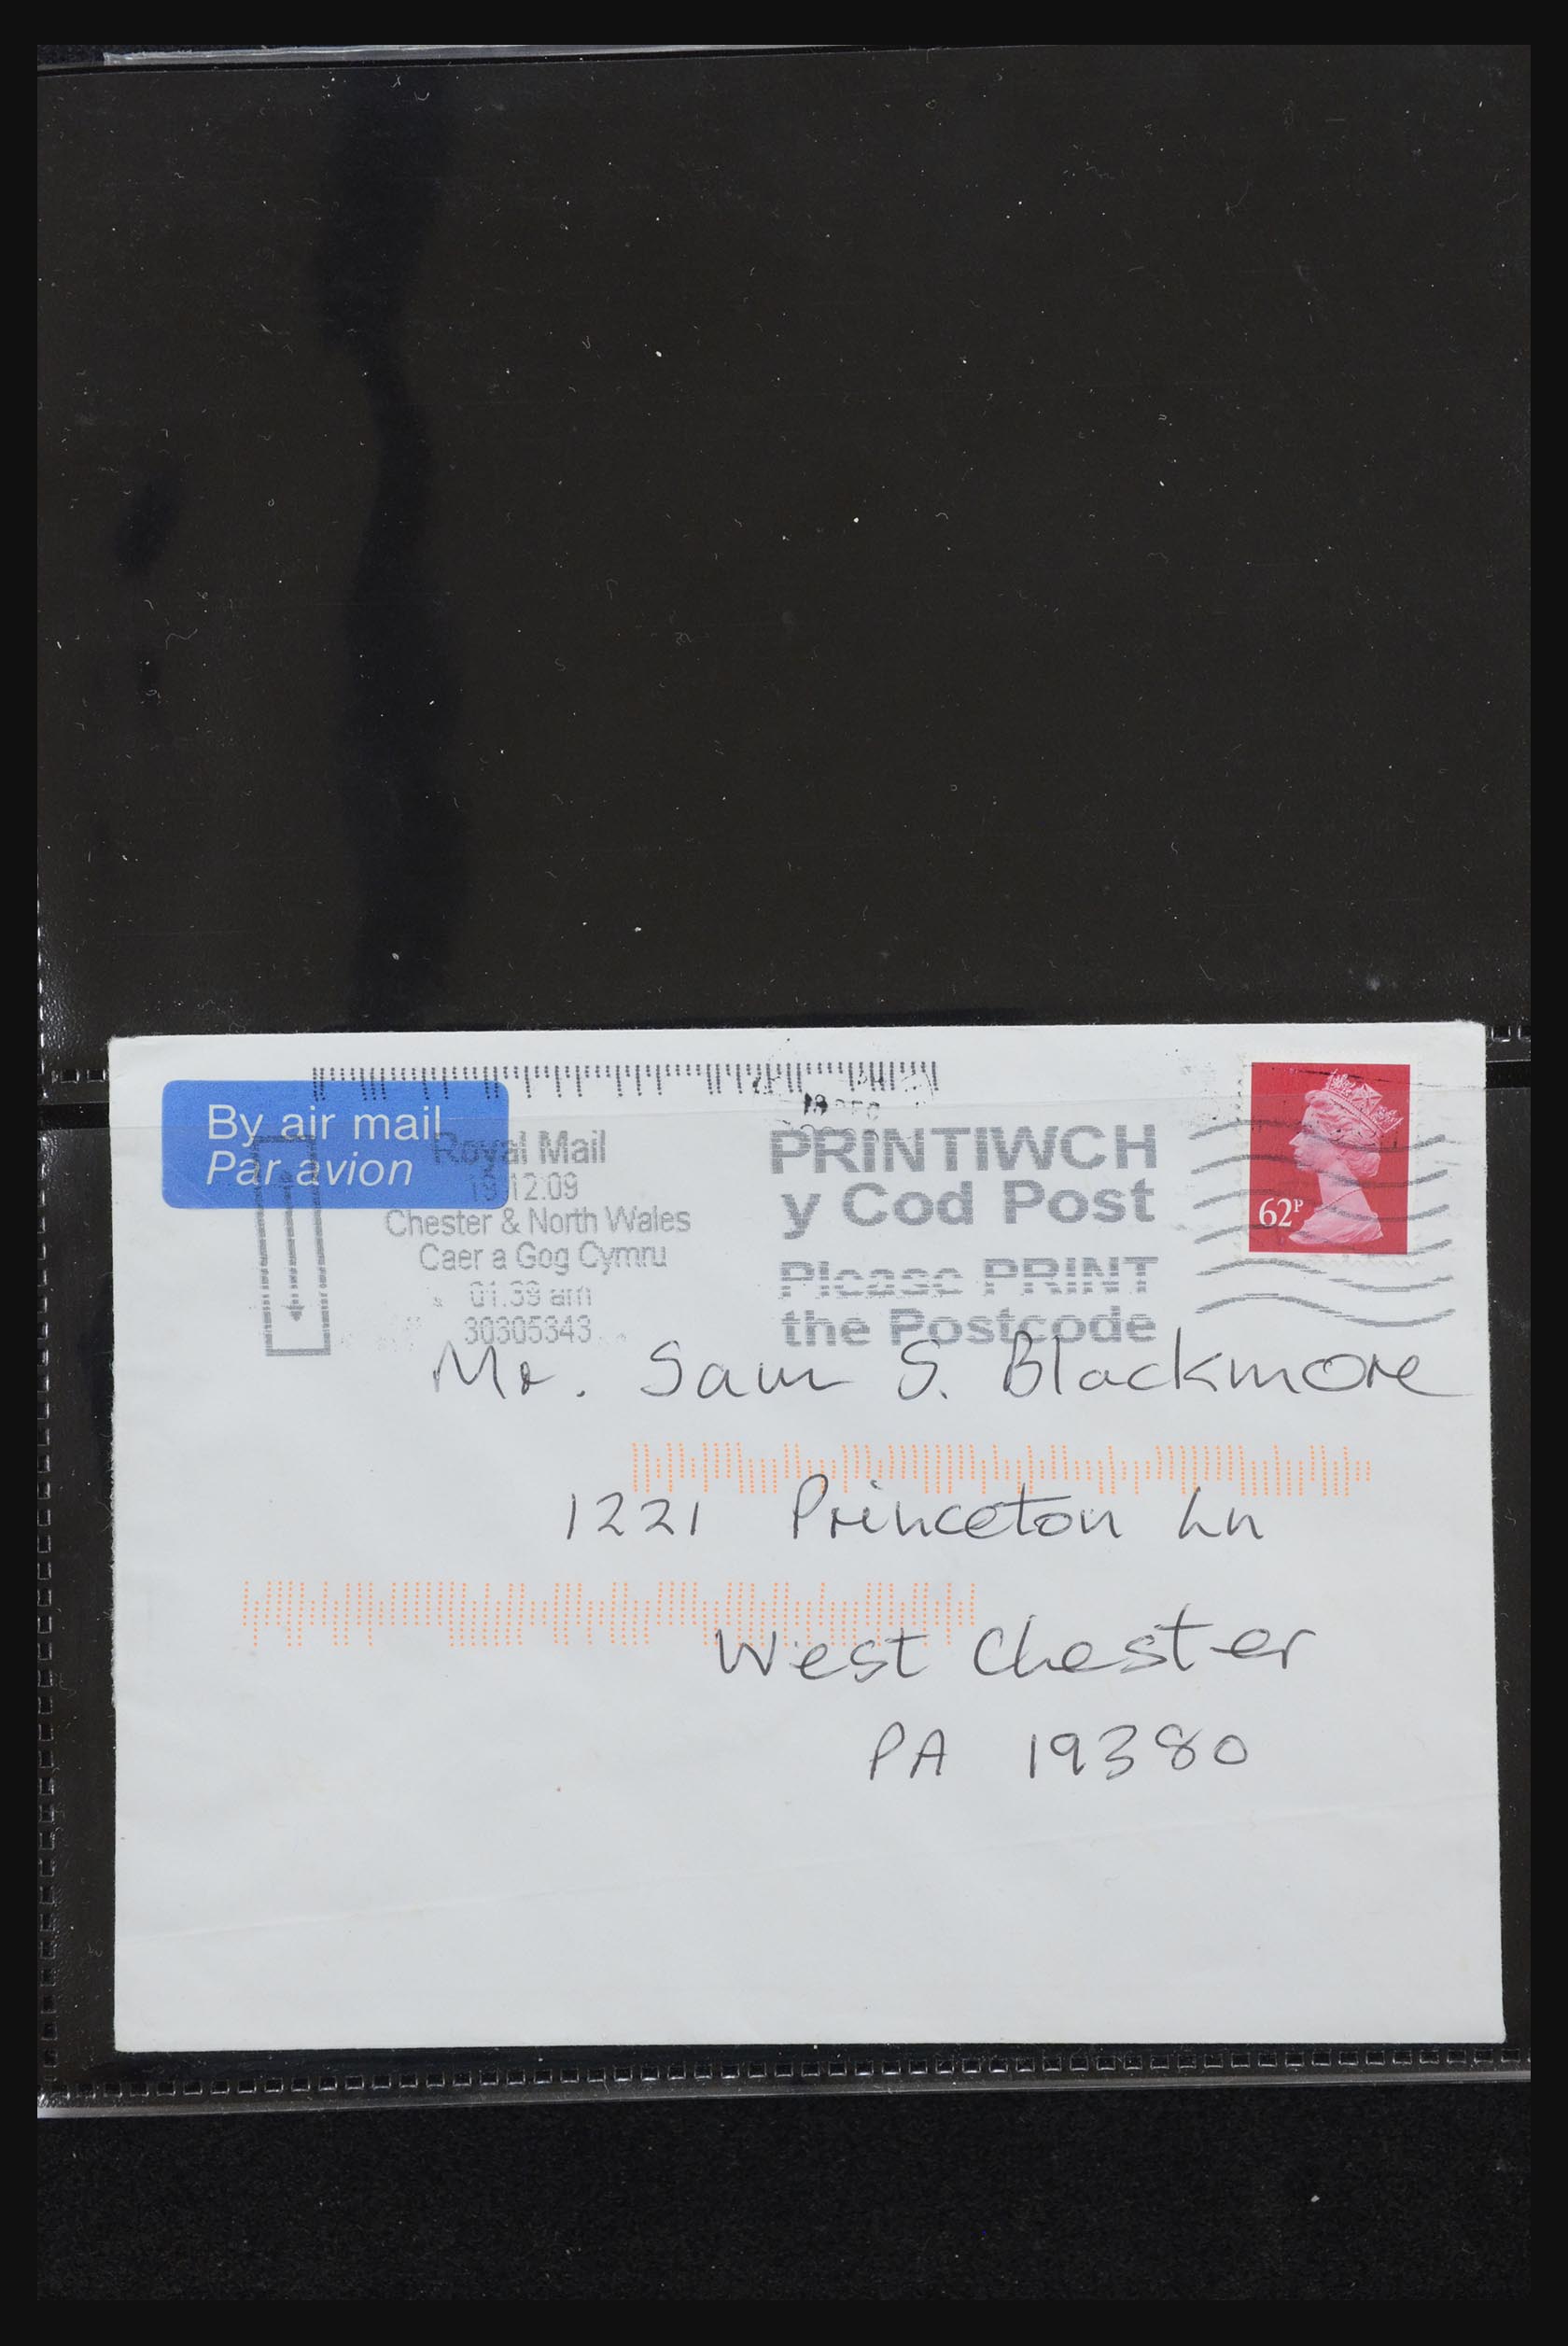 By air mail
Par avion
Royal Mail
12.09
Chester & North Wales
Caer a Gog Cymru
01:39 am
30305343
PRINTIWCH
y Cod Post
Please PRINT
the Postcode
62P
Mr. Sam S. Blackmore
1221 Princeton Ln
West Chester
PA 19380